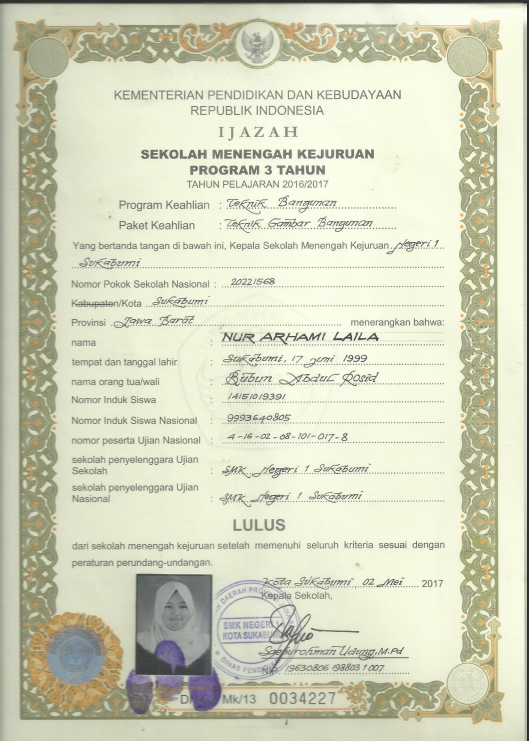 KEMENTERIAN PENDIDIKAN DAN KEBUDAYAAN
REPUBLIK INDONESIA
IJAZAH
SEKOLAH MENENGAH KEJURUAN
PROGRAM 3 TAHUN
TAHUN PELAJARAN 2016/2017
Program Keahlian : Teknik Bangunan
Paket Keahlian : Teknik Gambar Bangunan
Yang bertanda tangan di bawah ini, Kepala Sekolah Menengah Kejuruan Negeri 1
Sukabumi
Nomor Pokok Sekolah Nasional : 20221568
Kabupaten/Kota Sukabumi
Provinsi Jawa Barat menerangkan bahwa:
nama : NUR ARHAMI LAILA
tempat dan tanggal lahir : Sukabumi, 17 Juni 1999
nama orang tua/wali : Bubun Abdul Rosid
Nomor Induk Siswa : 14151019391
Nomor Induk Siswa Nasional : 9993640805
nomor peserta Ujian Nasional : 4-16-02-08-101-017-8
sekolah penyelenggara Ujian
Sekolah : SMK Negeri 1 Sukabumi
sekolah penyelenggara Ujian
Nasional : SMK Negeri 1 Sukabumi
LULUS
dari sekolah menengah kejuruan setelah memenuhi seluruh kriteria sesuai dengan
peraturan perundang-undangan.
Kota Sukabumi, 02 Mei 2017
Kepala Sekolah,
DAERAH PROVINSI
SMK NEGERI 1
KOTA SUKABUMI
DINAS PENDIDIKAN
Saepurohman Udung, M.Pd
NIP 19630806 198803 1 007
Mk/13 0034227